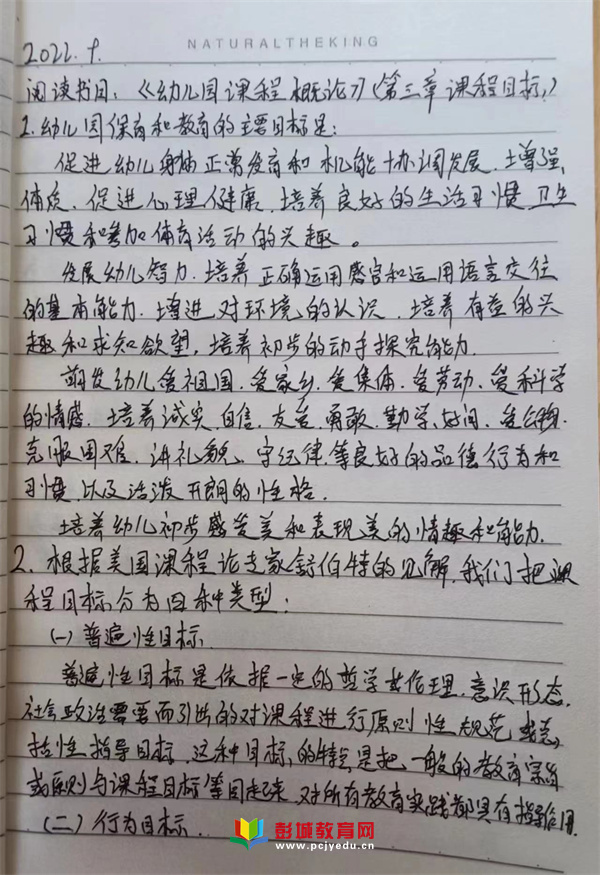 NATURALTHEKING
2022.9.
阅读书目：《幼儿园课程概论》（第三章 课程目标）
1.幼儿园保育和教育的主要目标是：
促进幼儿身体正常发育和机能协调发展．增强
体质．促进心理健康．培养良好的生活习惯．卫生
习惯和参加体育活动的兴趣。
发展幼儿智力．培养正确运用感官和运用语言交往
的基本能力．增进对环境的认识．培养有益的兴
趣和求知欲望．培养初步的动手探究能力．
萌发幼儿爱祖国．爱家乡．爱集体．爱劳动．爱科学
的情感．培养诚实．自信．友爱．勇敢．勤学．好问．爱公物．
克服困难．讲礼貌、守纪律等良好的品德行为和
习惯．以及活泼开朗的性格．
培养幼儿初步感受美和表现美的情趣和能力．
2．根据美国课程论专家舒伯特的见解．我们把课
程目标分为四种类型：
（一）普遍性目标．
普遍性目标是依据一定的哲学或伦理．意识形态．
社会政治需要而引出的对课程进行原则性规范或总
括性指导目标．这种目标的特点是把一般的教育宗旨
或原则与课程目标等同起来．对所有教育实践都具有指导作用．
（二）行为目标．
彭城教育网
www.pcjyedu.cn